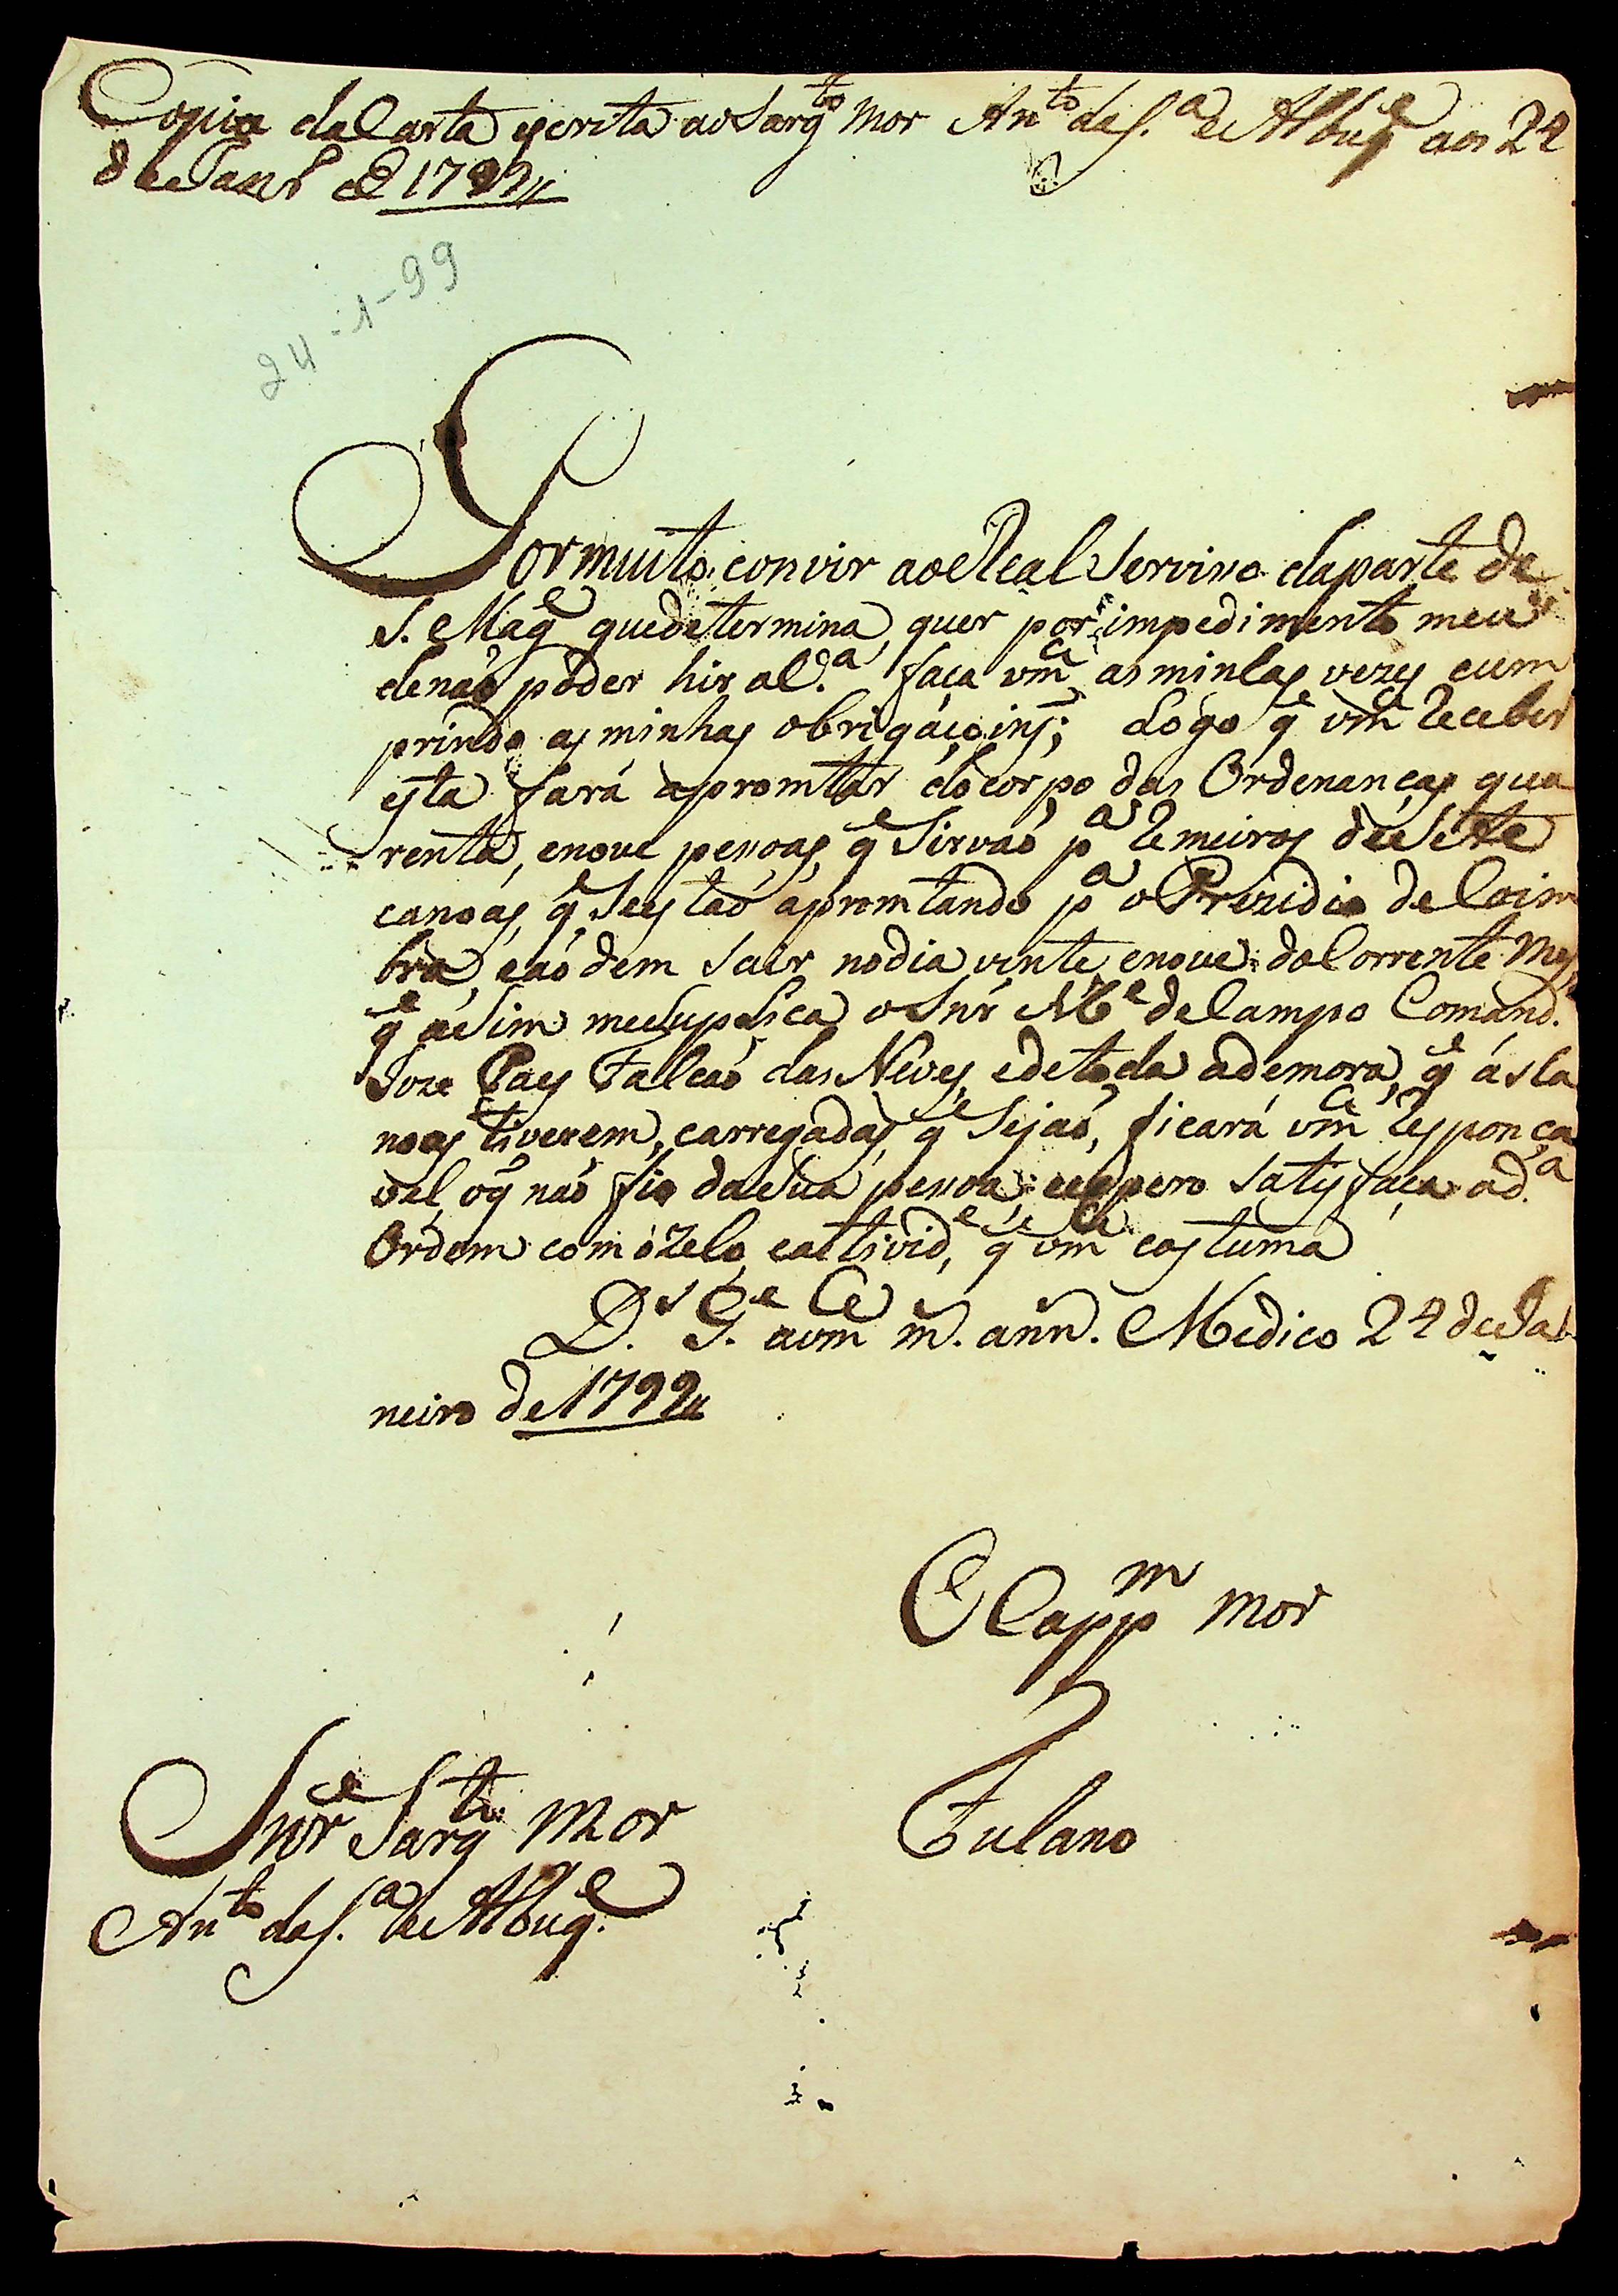 Copia da Carta escrita ao Sarg.to Mor An.to da S.a de Albuq.e aos 24
de Janr.o de 1799//
24-1-99
Por muito convir ao Real Servisso da parte de
S. Mag.e que determina, quer por impedimento meu
de naõ poder hir a l.d.a faça vm.ce as minhas vezes cum
prindo as minhas obrigaçoins; Logo q.e vm.ce receber
esta fará apromtar do corpo das Ordenanças qua
renta, e nove pessoas, q.e Sirvaõ p.a remeiros de Sete
canoas, q.e Se estaõ apromtando p.a o Prezidio de Coim
bra, e aõ dem sair no dia vinte e nove do Corrente Mes,
q.e aSim me Suplica o Snr M.e de Campo Comand.
Joze Paes Falcaõ das Neves, e de toda a demora, q.e as Ca
noas tiverem, carregadas q.e Sejaõ, ficará vm.ce responça
vel, o q̃ naõ fio da Sua pessoa, e espero Satisfaça a d.a
Ordem com o zelo, e activid.e, q.e vm.ce costuma
D.s G.e a vm.ce m. ann. Medico 24 de Ja
neiro de 1799//
O Capp.m Mor
Fulano
Snr.e Sarg.to Mor
An.to da S.a de Albuq.e